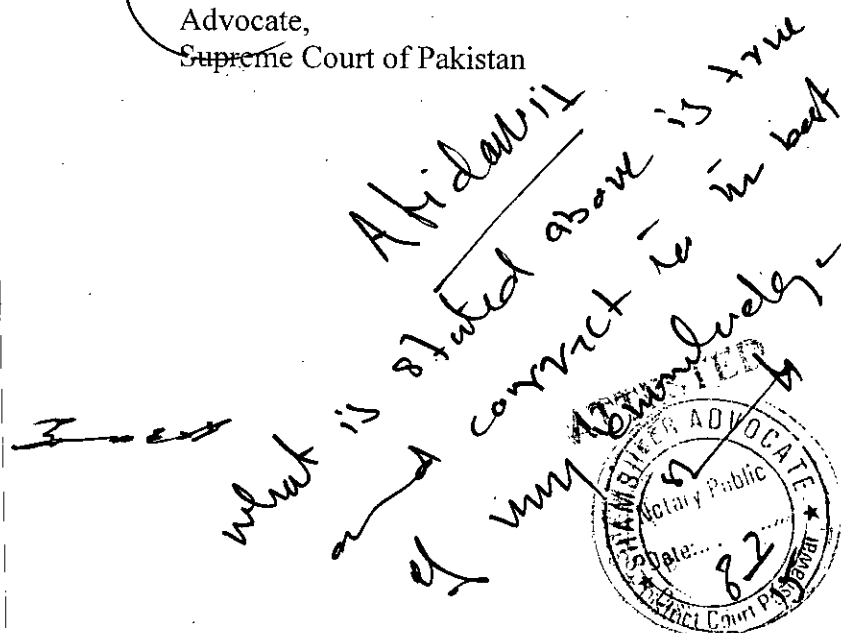 Advocate,
Supreme Court of Pakistan
Afidavit
what is stated above is true
and correct to the best
of my knowledge
ATTESTED
SHAMSHEER ADVOCATE
Notary Public
Date:
District Court Peshawar